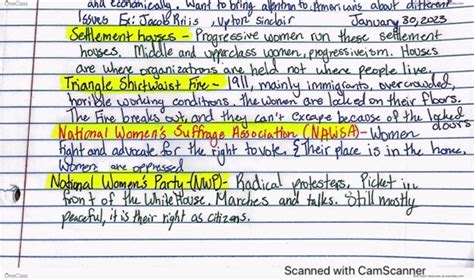 and economically. Want to bring attention to Americans about different
Issues Ex: Jacob Riis, Upton Sinclair January 30, 2023
Settlement houses - Progressive women run these settlement
houses. Middle and upperclass women, progressiveism. Houses
are where organizations are held not where people live.
Triangle Shirtwaist Fire - 1911, mainly immigrants, overcrowded,
horrible working conditions. The women are locked on their floors.
The Fire breaks out, and they can't excape because of the locked doors
National Women's Suffrage Association (NAWSA) - Women
fight and advocate for the right to vote. & Their place is in the home.
Women are oppressed
National Women's Party (NWP) - Radical protesters, Picket in
front of the White House. Marches and talks. Still mostly
peaceful, it is their right as citizens.
Scanned with CamScanner
OneClass